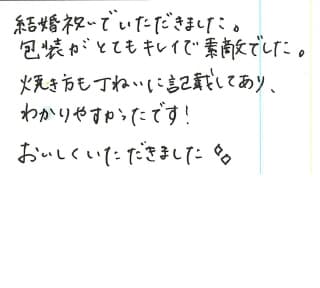 結婚祝いでいただきました。
包装がとてもキレイで素敵でした。
焼き方も丁ねいに記載してあり、
わかりやすかったです!
おいしくいただきました